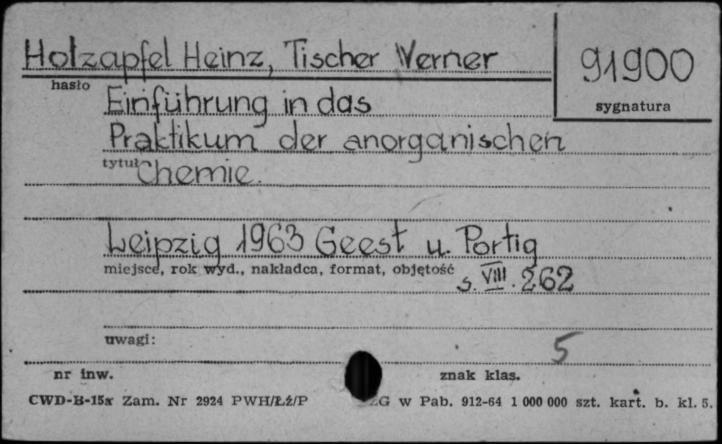 Holzapfel Heinz, Tischer Werner
91900
hasło
sygnatura
Einführung in das
Praktikum der anorganischen
tytuł Chemie.
Leipzig 1963 Geest u. Portig
miejsce, rok wyd., nakładca, format, objętość
s. VIII. 262
uwagi:
5
nr inw.
znak klas.
CWD-B-15a Zam. Nr 2924 PWH/Łż/P ZG w Pab. 912-64 1 000 000 szt. kart. b. kl. 5.